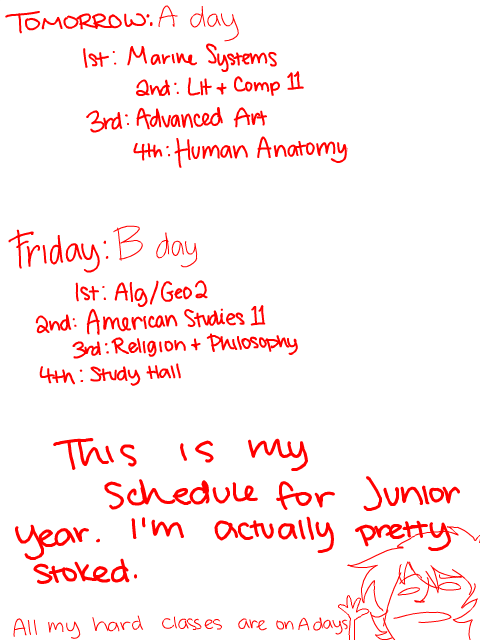 TOMORROW: A day
1st: Marine Systems
2nd: Lit + Comp 11
3rd: Advanced Art
4th: Human Anatomy
Friday: B day
1st: Alg/Geo2
2nd: American Studies 11
3rd: Religion + Philosophy
4th: Study Hall
This is my
Schedule for Junior
year. I'm actually pretty
stoked.
All my hard classes are on A days